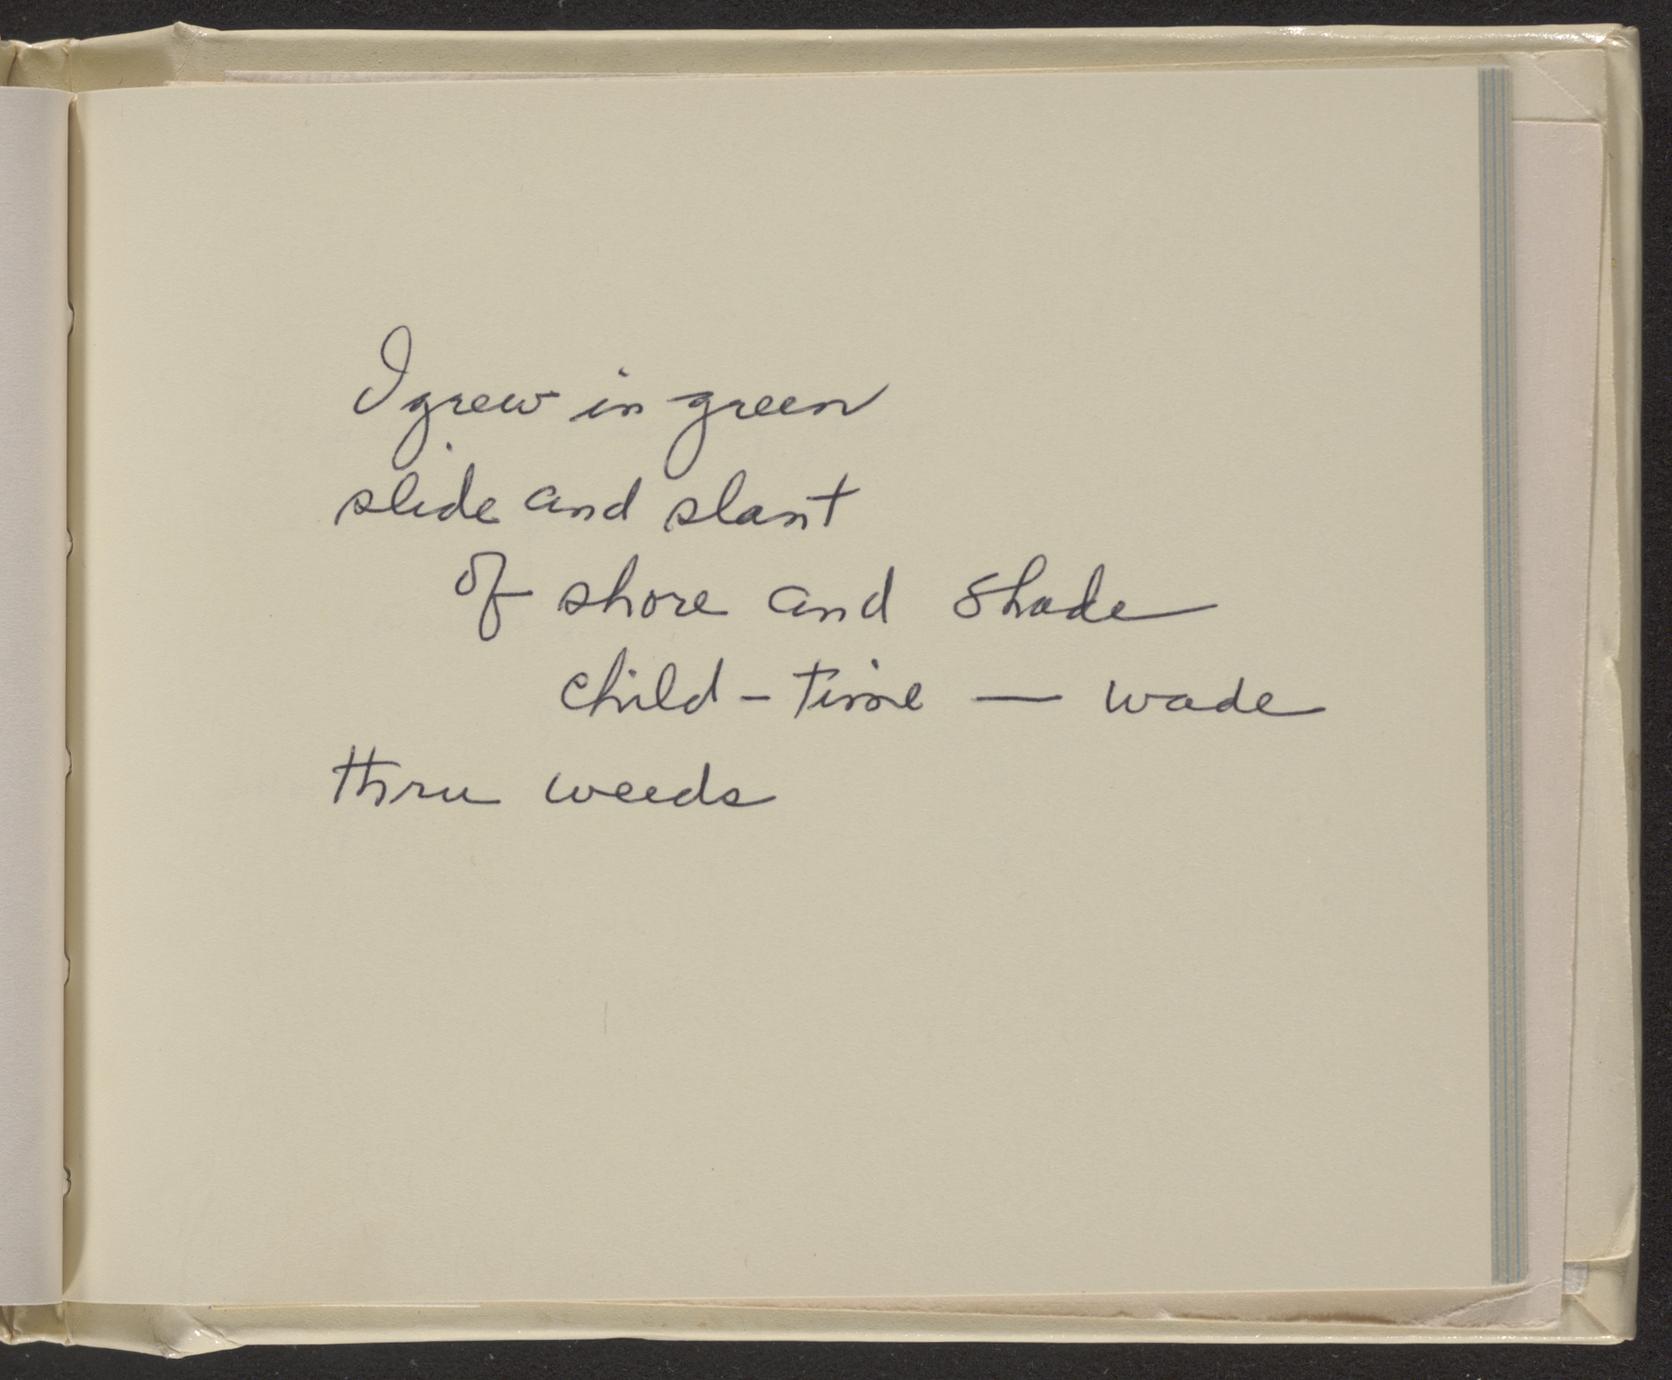 I grew in green
slide and slant
of shore and shade
child-time — wade
thru weeds